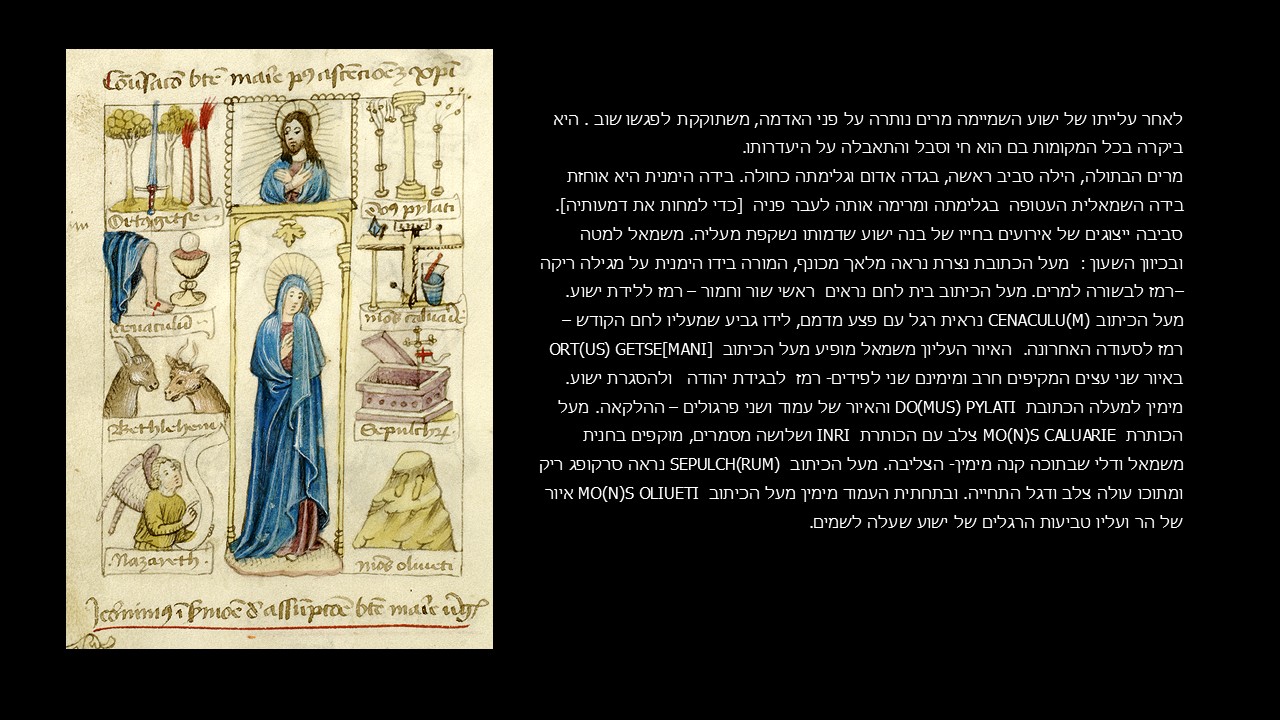 לאחר עלייתו של ישוע השמיימה מרים נותרה על פני האדמה, משתוקקת לפגשו שוב . היא
ביקרה בכל המקומות בם הוא חי וסבל והתאבלה על היעדרותו.
מרים הבתולה, הילה סביב ראשה, בגדה אדום וגלימתה כחולה. בידה הימנית היא אוחזת
בידה השמאלית העטופה בגלימתה ומרימה אותה לעבר פניה [כדי למחות את דמעותיה].
סביבה ייצוגים של אירועים בחייו של בנה ישוע שדמותו נשקפת מעליה. משמאל למטה
ובכיוון השעון : מעל הכתובת נצרת נראה מלאך מכונף, המורה בידו הימנית על מגילה ריקה
–רמז לבשורה למרים. מעל הכיתוב בית לחם נראים ראשי שור וחמור – רמז ללידת ישוע.
מעל הכיתוב CENACULU(M) נראית רגל עם פצע מדמם, לידו גביע שמעליו לחם הקודש –
רמז לסעודה האחרונה. האיור העליון משמאל מופיע מעל הכיתוב ORT(US) GETSE[MANI]
באיור שני עצים המקיפים חרב ומימינם שני לפידים- רמז לבגידת יהודה ולהסגרת ישוע.
מימין למעלה הכתובת DO(MUS) PYLATI והאיור של עמוד ושני פרגולים – ההלקאה. מעל
הכותרת MO(N)S CALUARIE צלב עם הכותרת INRI ושלושה מסמרים, מוקפים בחנית
משמאל ודלי שבתוכה קנה מימין- הצליבה. מעל הכיתוב SEPULCH(RUM) נראה סרקופג ריק
ומתוכו עולה צלב ודגל התחייה. ובתחתית העמוד מימין מעל הכיתוב MO(N)S OLIUETI איור
של הר ועליו טביעות הרגלים של ישוע שעלה לשמים.
pylati
Bethlehem
Nazareth
oliveti